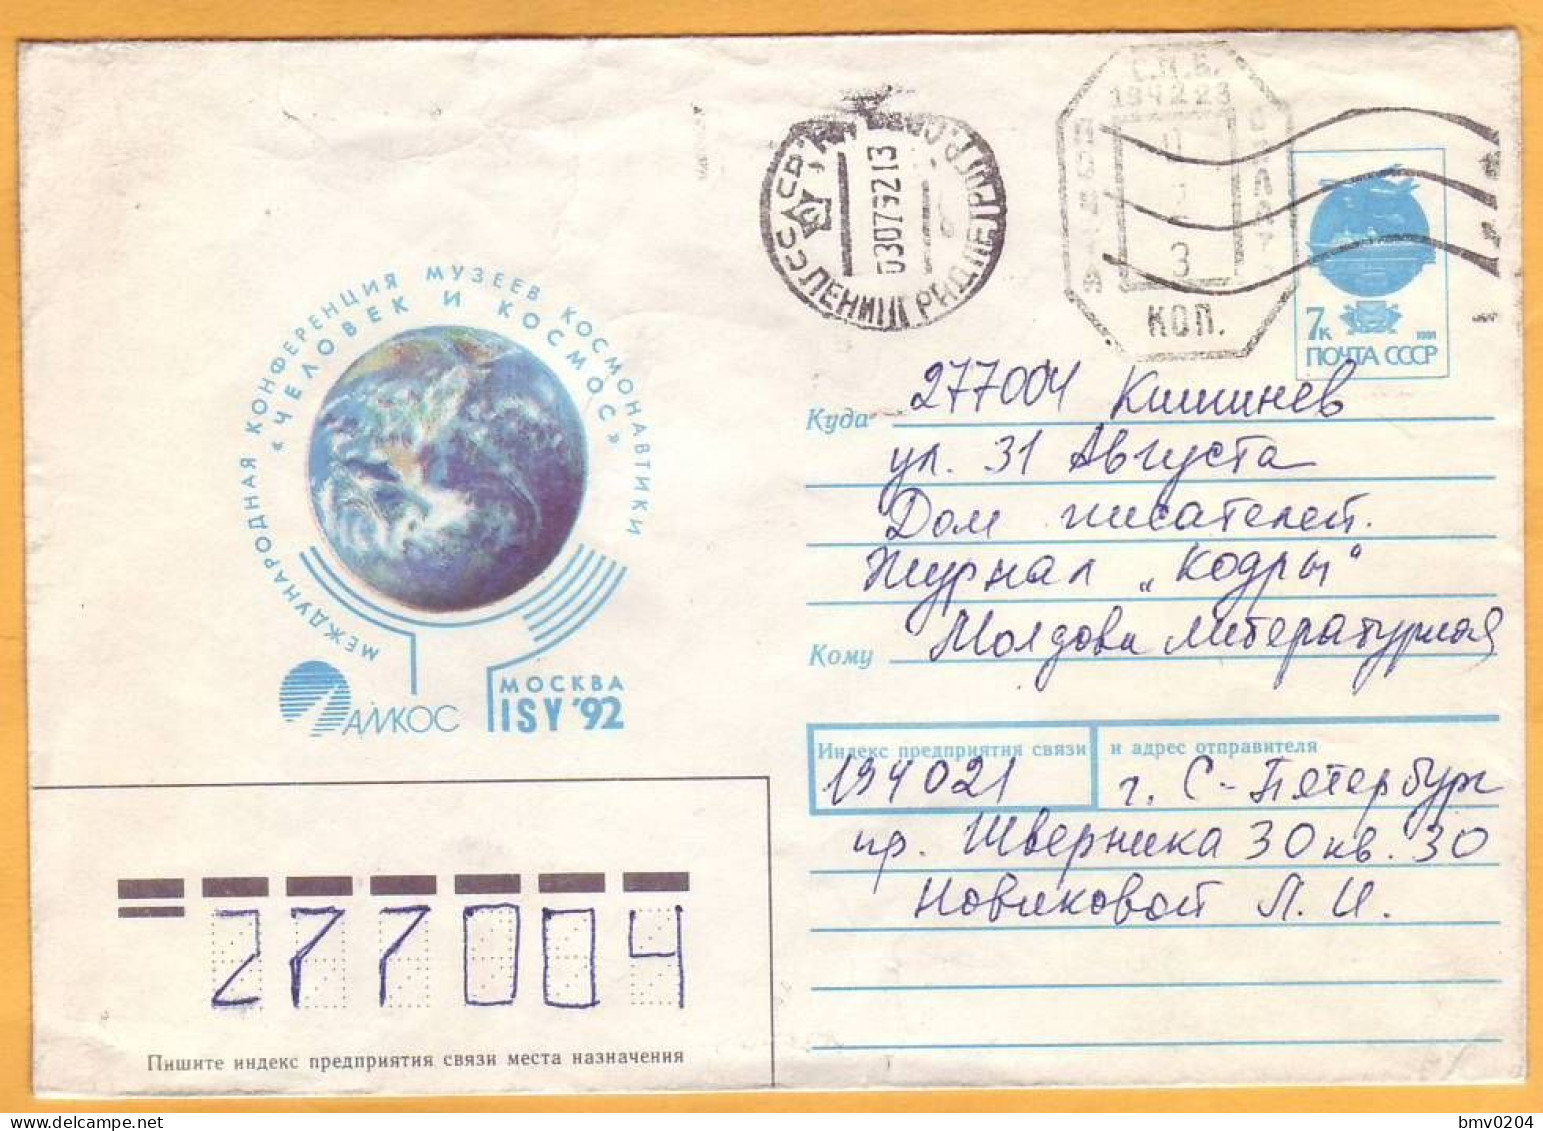 МЕЖДУНАРОДНАЯ КОНФЕРЕНЦИЯ МУЗЕЕВ КОСМОНАВТИКИ
«ЧЕЛОВЕК И КОСМОС»
АМКОС
МОСКВА
ISY '92
СССР
030792 13
ЛЕНИНГРАД
С.П.Б.
194223
ПОЧТА
3
КОП.
7к
1991
ПОЧТА СССР
Куда 277004 Кишинев
ул. 31 Августа
Дом писателей.
Журнал „Кодры"
Кому Молдова литературная
Индекс предприятия связи и адрес отправителя
194021 г. С-Петербург
пр. Шверника 30 кв. 30
Новиковой Л. И.
277004
Пишите индекс предприятия связи места назначения
bmv0204